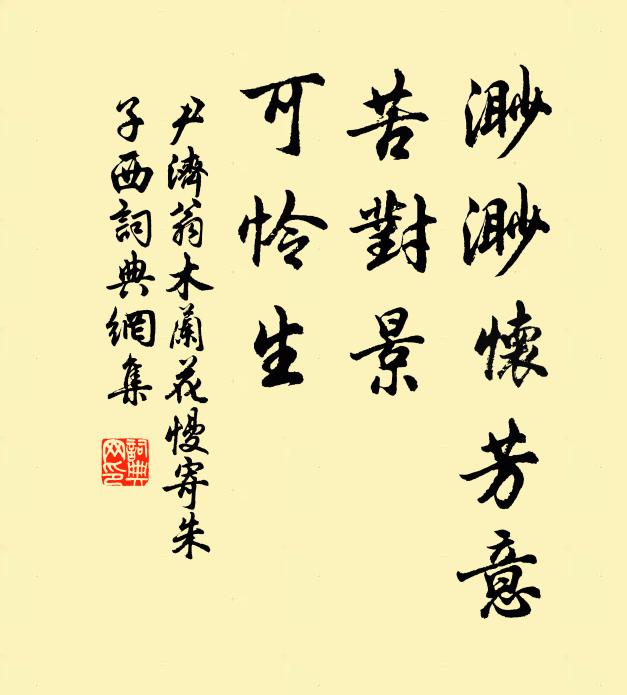 渺渺懷芳意
苦對景
可怜生
尹濟翁木蘭花慢寄朱
子西詞典網集
詞典网印